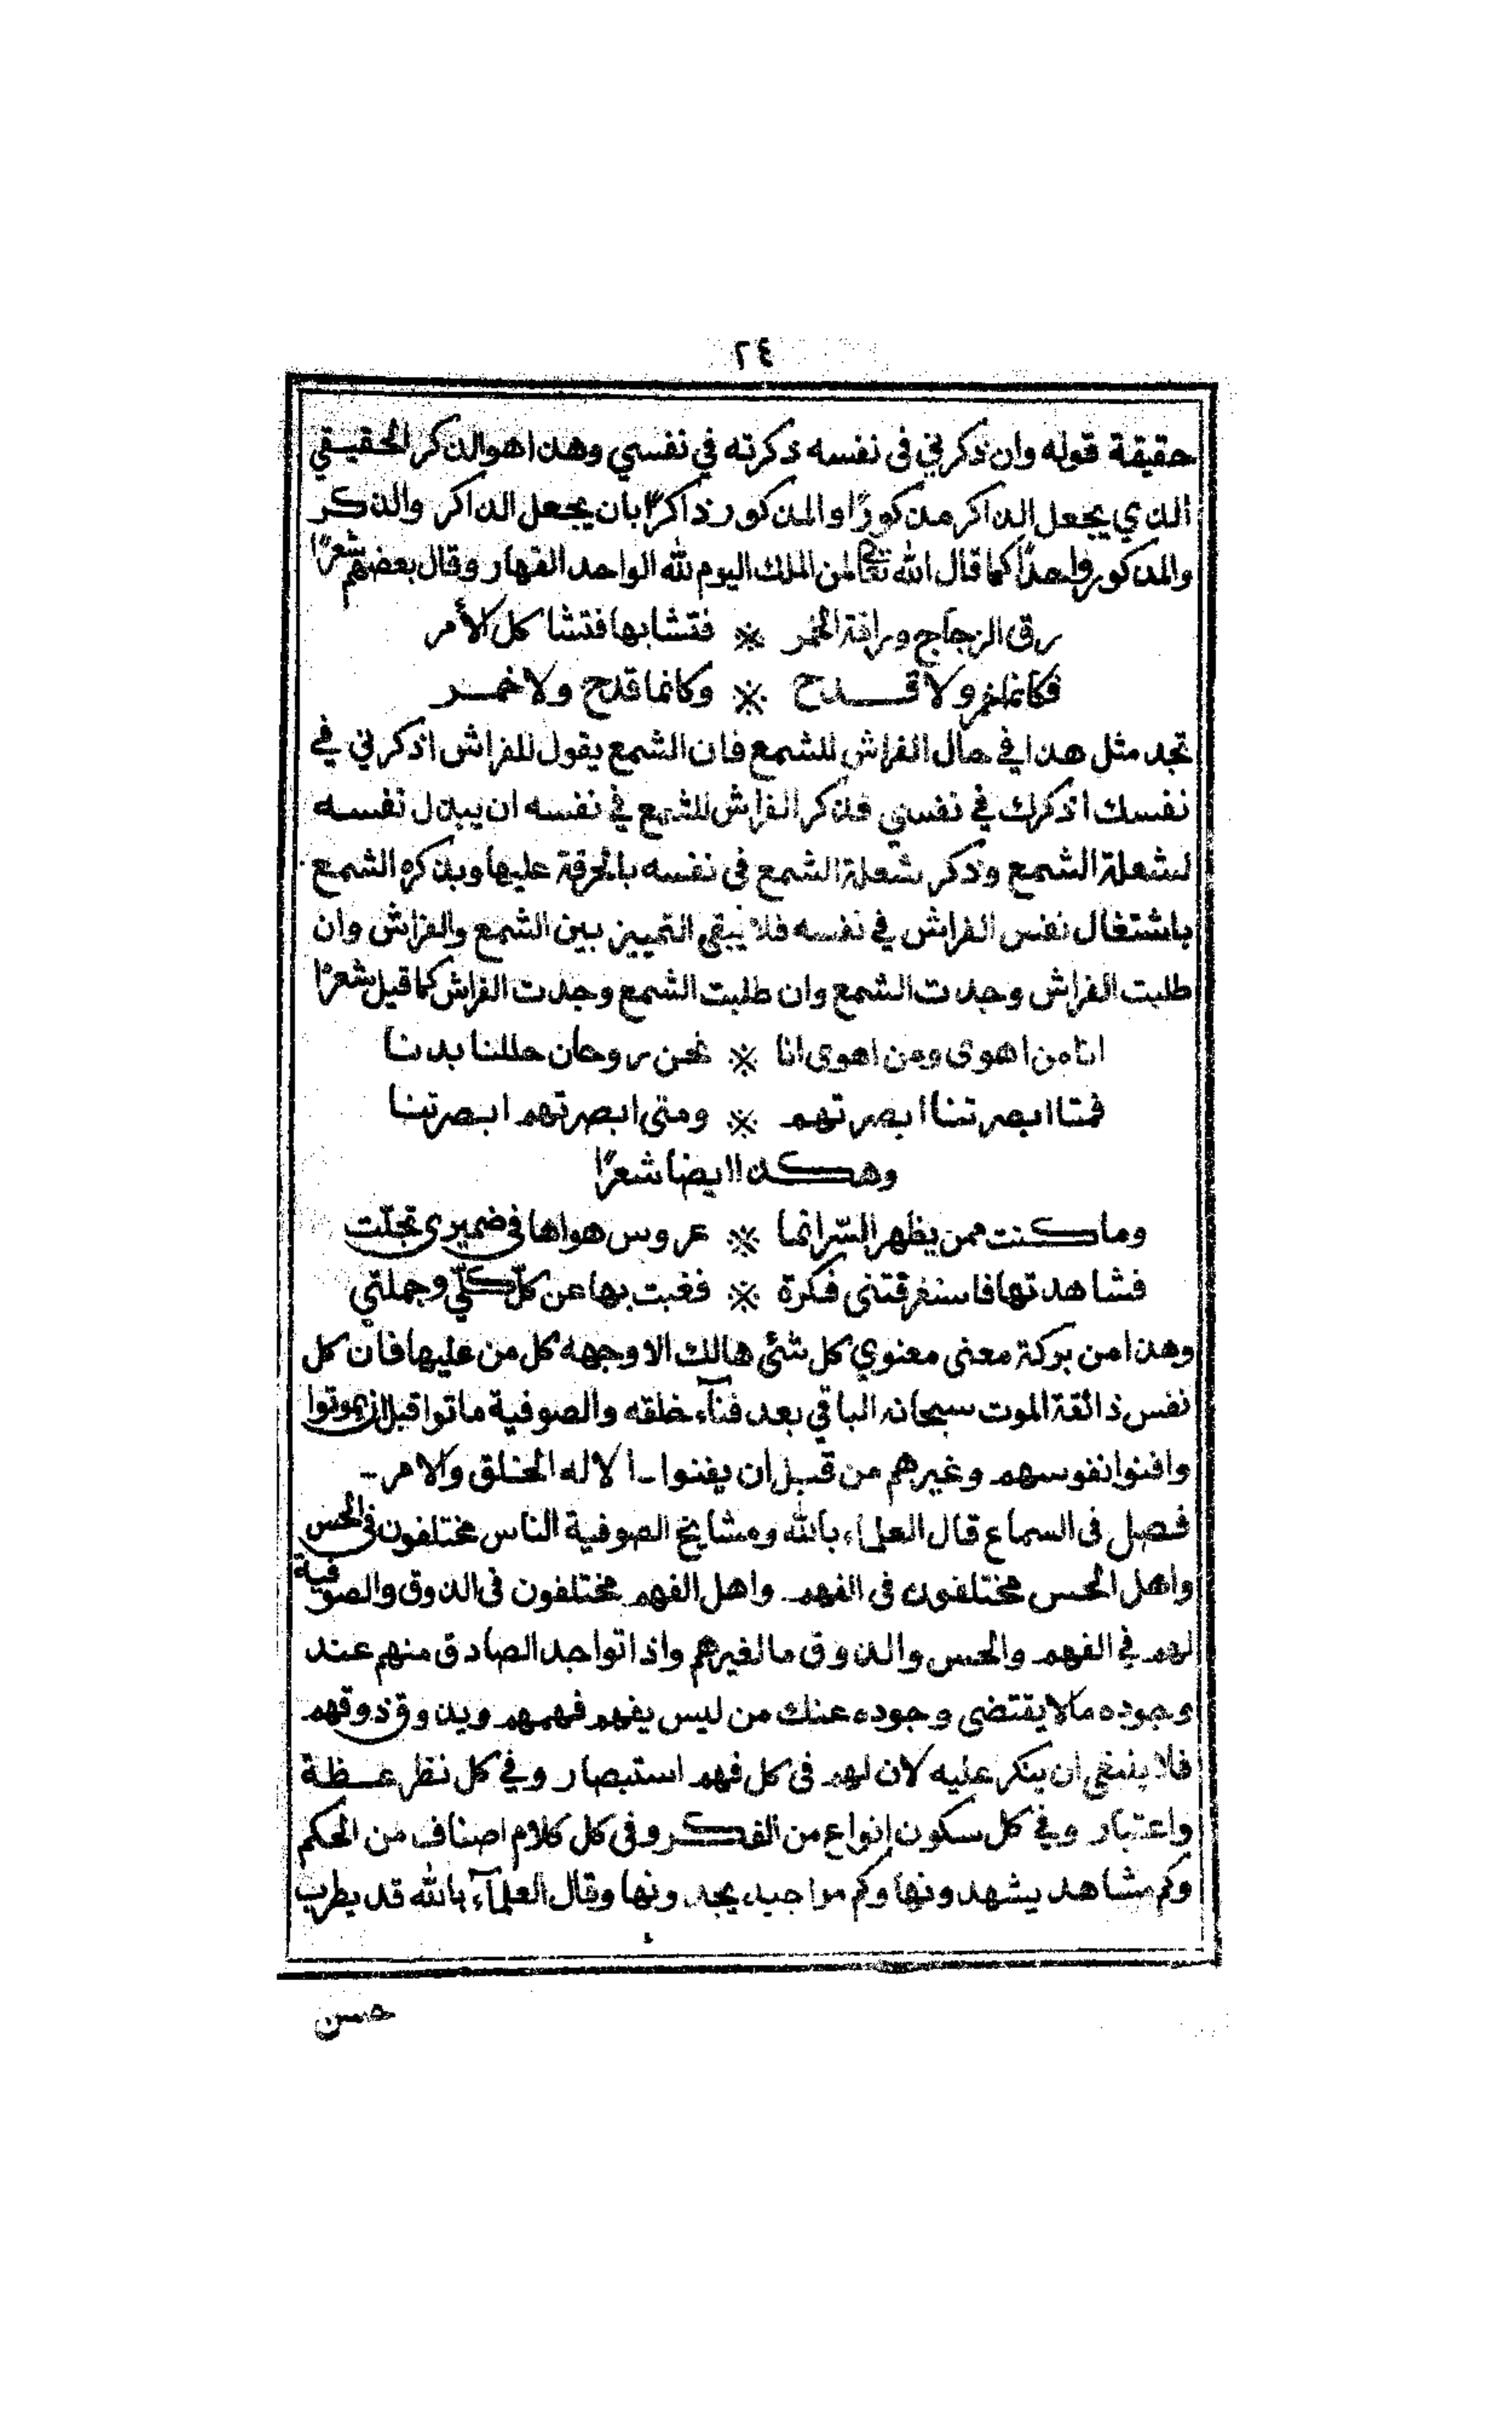 ٢٤
حقيقة قوله وان ذكرني فى نفسه ذكرته في نفسي وهذا هو الذكر الحقيقي
الذي يجعل الذاكر مذكورًا والمذكور ذاكرًا بان يجعل الذاكر والذكر
والمذكور واحدًا كما قال الله تعالى لمن الملك اليوم لله الواحد القهار وقال بعضهم شعرًا
رق الزجاج وراقة الخمر ※ فتشابها فتشاكل الأمر
فكانما خمر ولا قدح ※ وكانما قدح ولا خمر
تجد مثل هذا في حال الفراش للشمع فان الشمع يقول للفراش اذكرني في
نفسك اذكرك في نفسي فذكر الفراش للشمع في نفسه ان يبذل نفسه
لشعلة الشمع وذكر شعلة الشمع فى نفسه بالحرقة عليها ويذكره الشمع
باشتغال نفس الفراش في نفسه فلا يبقى التمييز بين الشمع والفراش وان
طلبت الفراش وجدت الشمع وان طلبت الشمع وجدت الفراش كما قيل شعرًا
انا من اهوى ومن اهوى انا ※ نحن روحان حللنا بدنا
فمتا ابصرتنا ابصرتهم ※ ومتى ابصرتهم ابصرتنا
وهكذا ايضا شعرًا
وما كنت ممن يظهر السّر انما ※ عروس هواها في ضميرى تجلّت
فشاهدتها فاستغرقتنى فكرة ※ فغبت بها عن كلّ كلّي وجملتي
وهذا من بركة معنى معنوي كل شئ هالك الا وجهه كل من عليها فان كل
نفس ذائقة الموت سبحانه الباقي بعد فنآء خلقه والصوفية ماتوا قبل ان يموتوا
وافنوا نفوسهم وغيرهم من قبل ان يفنوا ـ الا له الخلق والامر ــ
فصل فى السماع قال العلماء بالله ومشايخ الصوفية الناس مختلفون فى الحس
واهل الحس مختلفون فى الفهم واهل الفهم مختلفون فى الذوق والصوفية
لهم في الفهم والحس والذوق ما لغيرهم واذا تواجد الصادق منهم عند
وجوده ما لا يقتضى وجوده عنك من ليس يفهم فهمهم ويذوق ذوقهم
فلا ينبغي ان ينكر عليه لان لهم فى كل فهم استبصار وفي كل نظر عظة
واعتبار وفي كل سكون انواع من الفكر وفى كل كلام اصناف من الحكم
وكم مشاهد يشهدونها وكم مواجيد يجدونها وقال العلمآء بالله قد يطرب
حسن